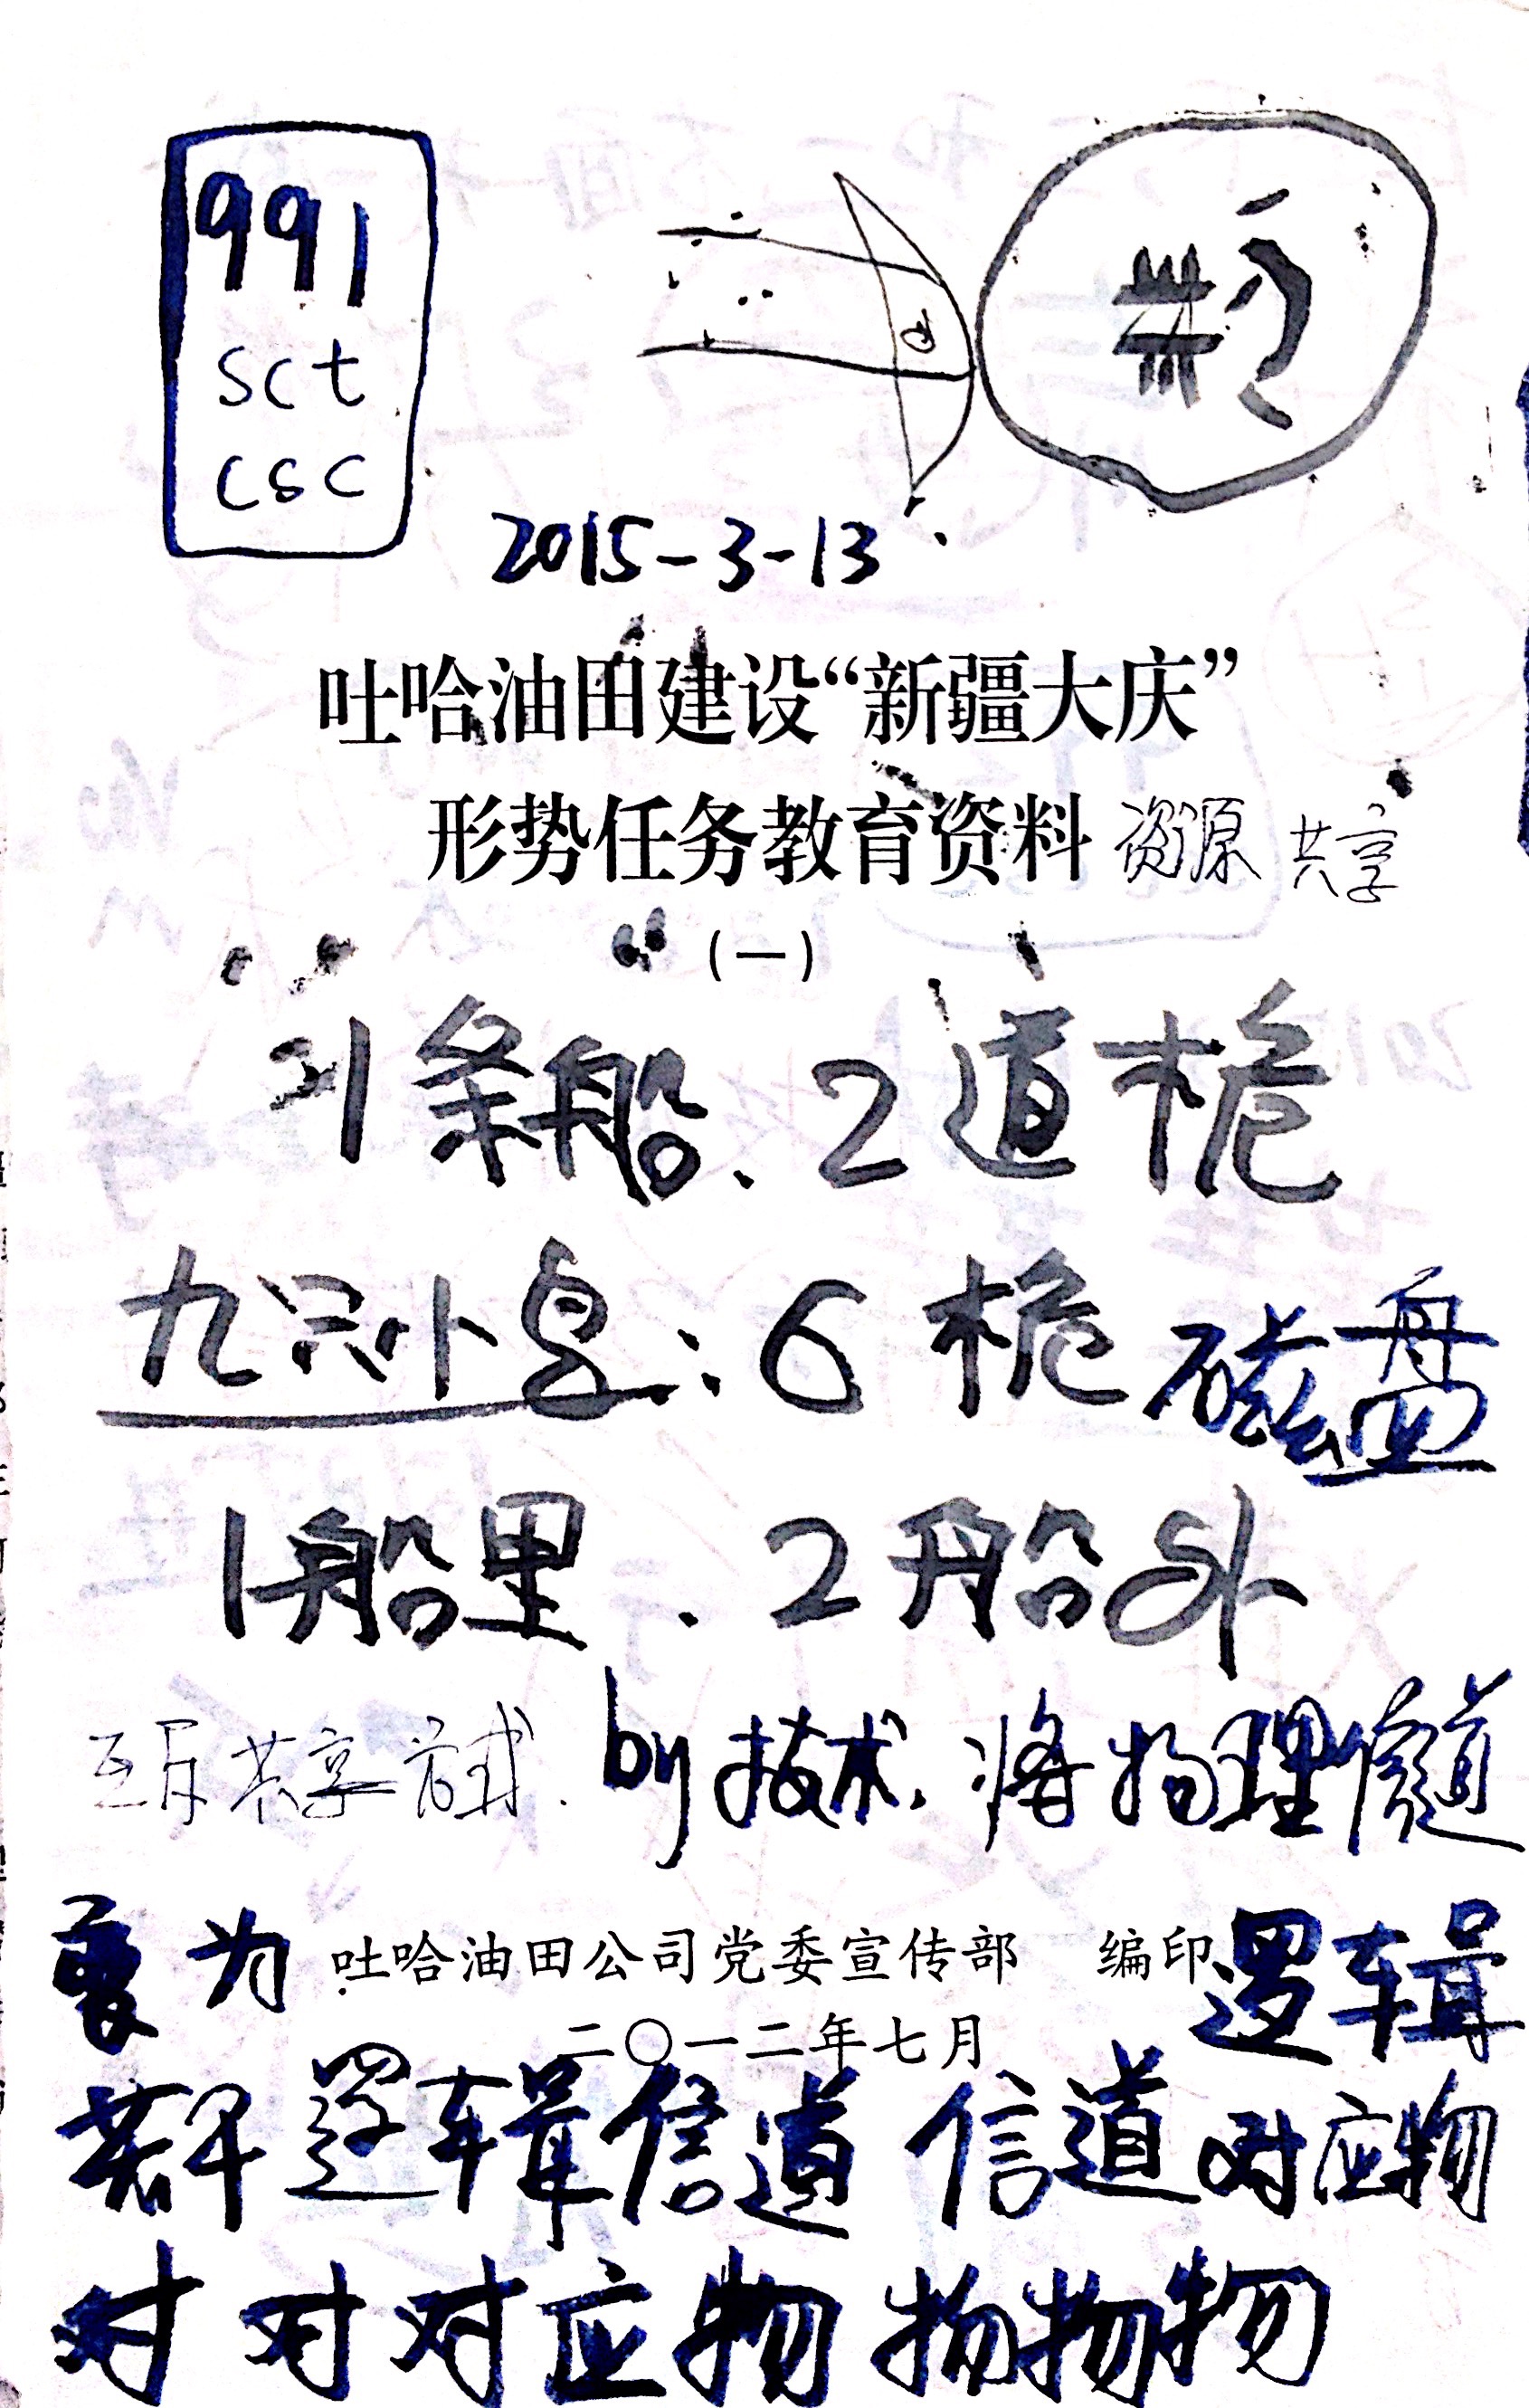 991
sct
csc
2015-3-13
吐哈油田建设“新疆大庆”
形势任务教育资料 资源 共享
(一)
条船、2道桅
九只小鸟:6桅 磁盘
1船里、2船外
共享方式. by技术, 将物理信道
变为 逻辑
吐哈油田公司党委宣传部 编印
二〇一二年七月
逻辑信道 信道对应物
对对对应物物物物